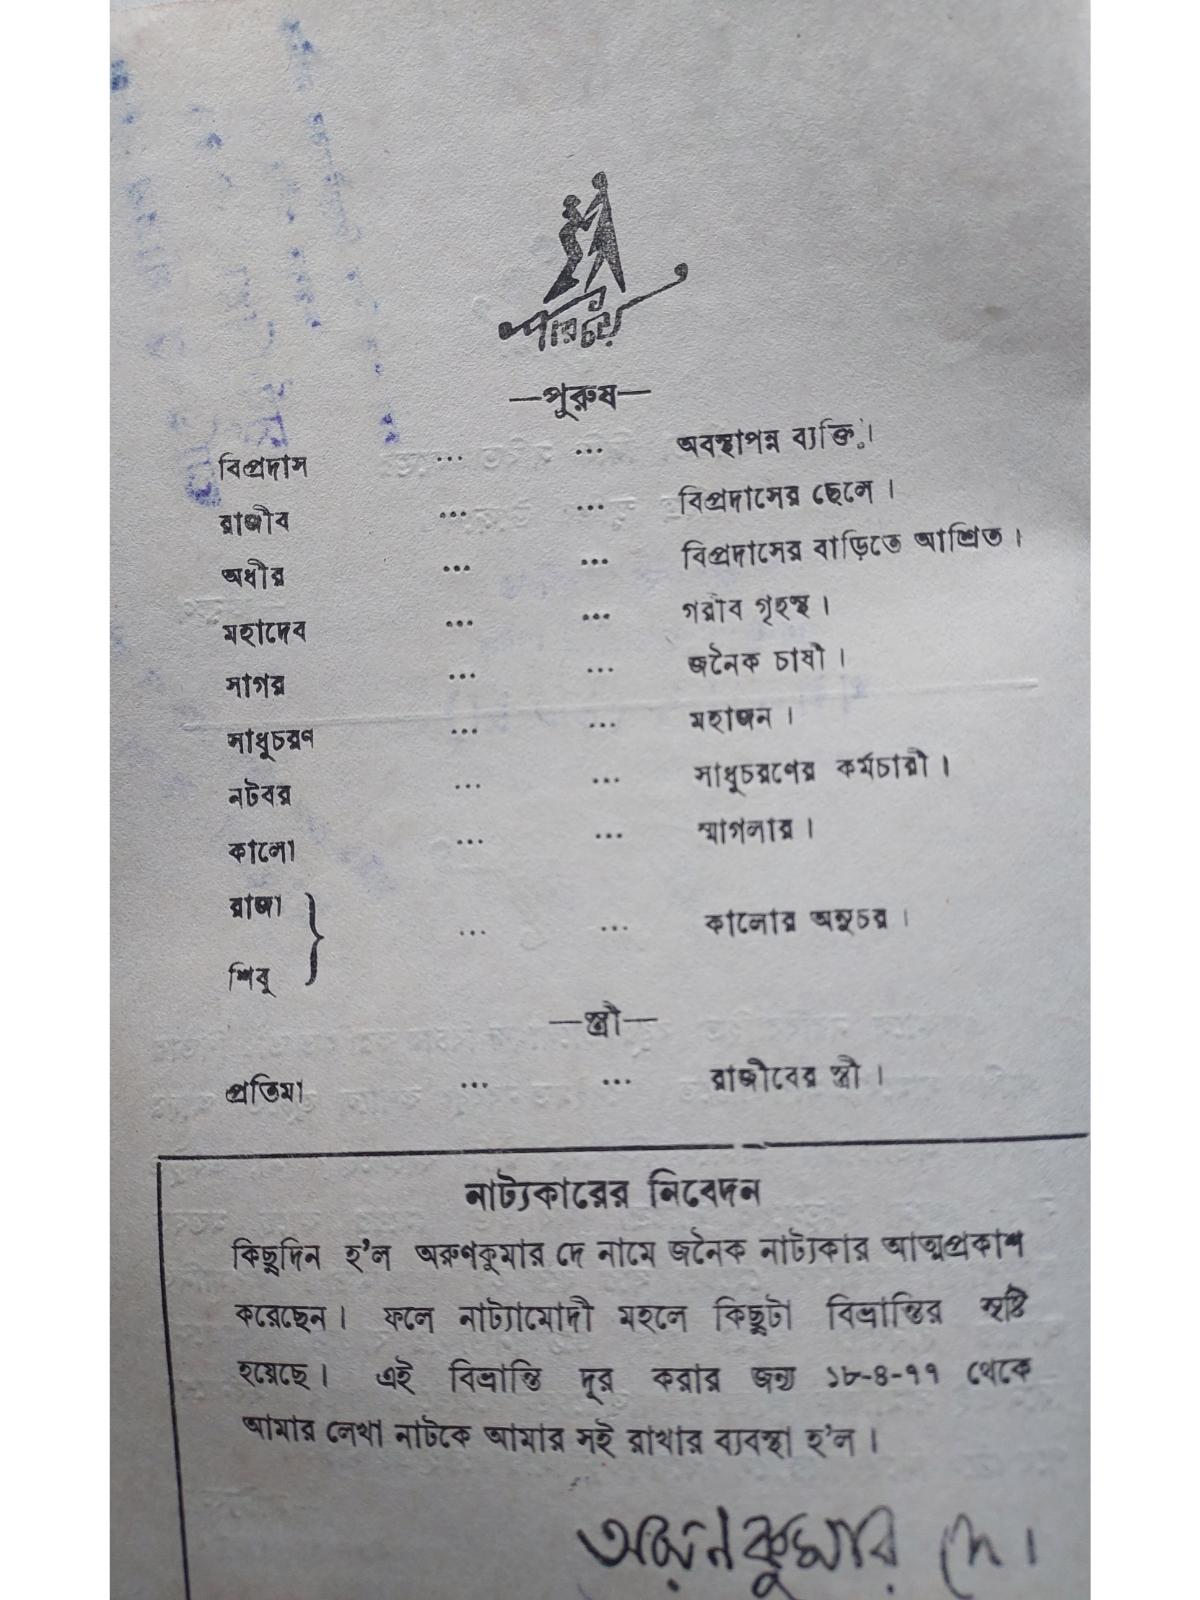 পরিচয়
—পুরুষ—
বিপ্রদাস ... ... অবস্থাপন্ন ব্যক্তি।
রাজীব ... ... বিপ্রদাসের ছেলে।
অধীর ... ... বিপ্রদাসের বাড়িতে আশ্রিত।
মহাদেব ... ... গরীব গৃহস্থ।
সাগর ... ... জনৈক চাষী।
সাধুচরণ ... ... মহাজন।
নটবর ... ... সাধুচরণের কর্মচারী।
কালো ... ... স্মাগলার।
রাজা
শিবু } ... ... কালোর অনুচর।
—স্ত্রী—
প্রতিমা ... ... রাজীবের স্ত্রী।
নাট্যকারের নিবেদন
কিছুদিন হ'ল অরুণকুমার দে নামে জনৈক নাট্যকার আত্মপ্রকাশ
করেছেন। ফলে নাট্যামোদী মহলে কিছুটা বিভ্রান্তির সৃষ্টি
হয়েছে। এই বিভ্রান্তি দূর করার জন্য ১৮-৪-৭৭ থেকে
আমার লেখা নাটকে আমার সই রাখার ব্যবস্থা হ'ল।
অরুনকুমার দে।